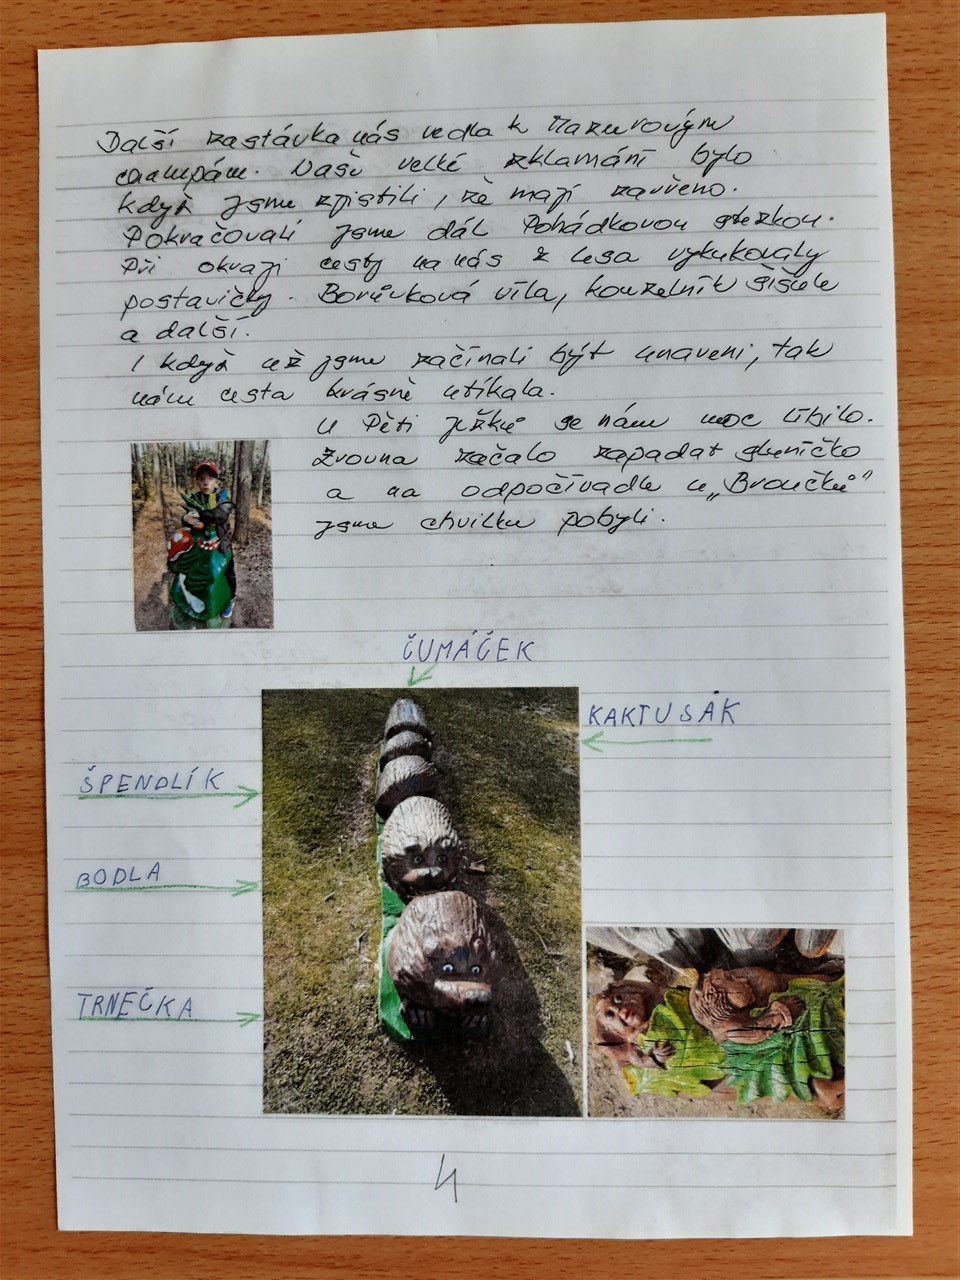 Další zastávka nás vedla k Mazurovým
chalupám. Naše velké zklamání bylo
když jsme zjistili, že mají zavřeno.
Pokračovali jsme dál Pohádkovou stezkou.
Při okraji cesty na nás z lesa vykukovaly
postavičky. Borůvková víla, kouzelník Šišule
a další.
I když už jsme začínali být unaveni, tak
nám cesta krásně utíkala.
U Pěti ježků se nám moc líbilo.
Zrovna začalo zapadat sluníčko
a na odpočívadle u „Broučků"
jsme chvilku pobyli.
ČUMÁČEK
KAKTUSÁK
ŠPENDLÍK
BODLA
TRNEČKA
4